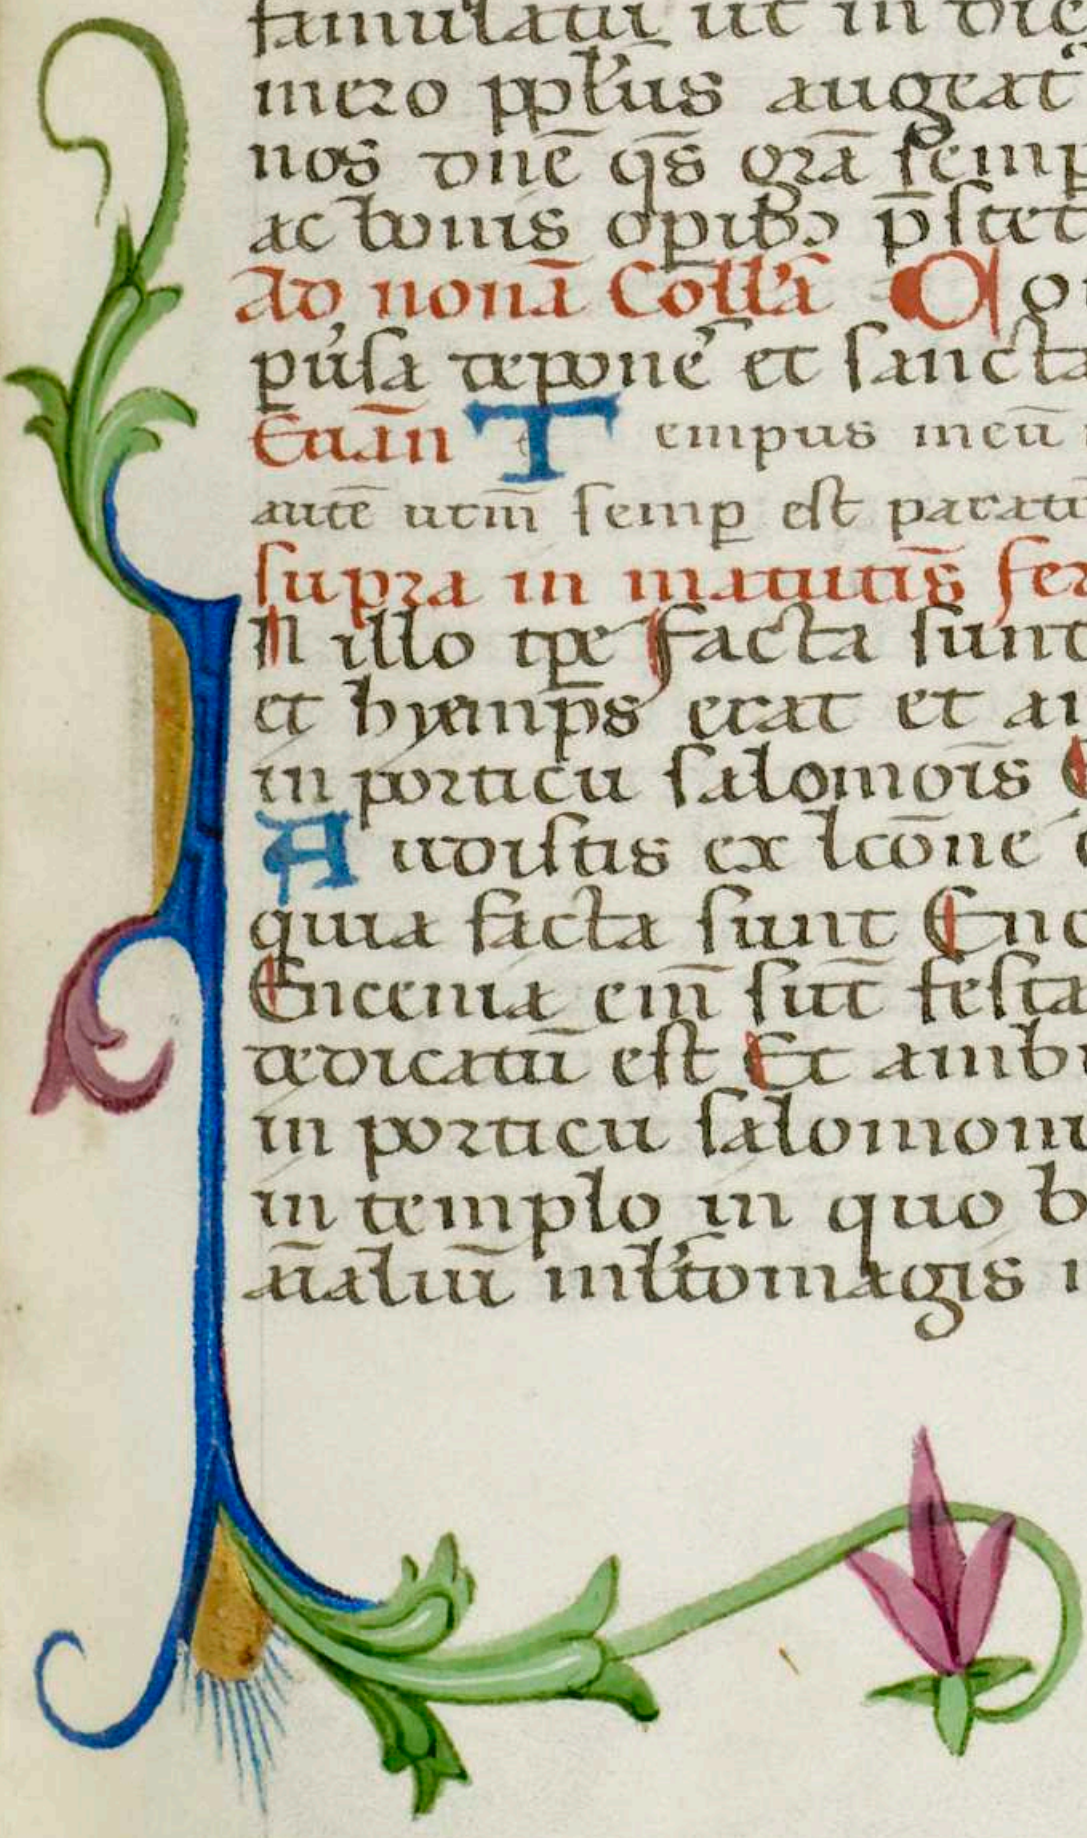 famulatui ut in die
mero pplūs augeat᷑
nos dn̄e q̄s gr̄a semp
ac bonis opibꝫ p̄stet
Ad nonā Coll'a
pu̓sa depone᷑ et sancta
Euān Tempus meū
autē urm̄ semp est paratū
supra in matutis̄ fer
In illo tp̄e facta sunt
et hyemps̄ erat et a
in porticu salomoīs
Audistis ex lcōne
quia facta sunt Enc
Encenia em̄ sūt festa
dedicatū est Et ambu
in porticu salomoni
in templo in quo
īn ml̓tomagis